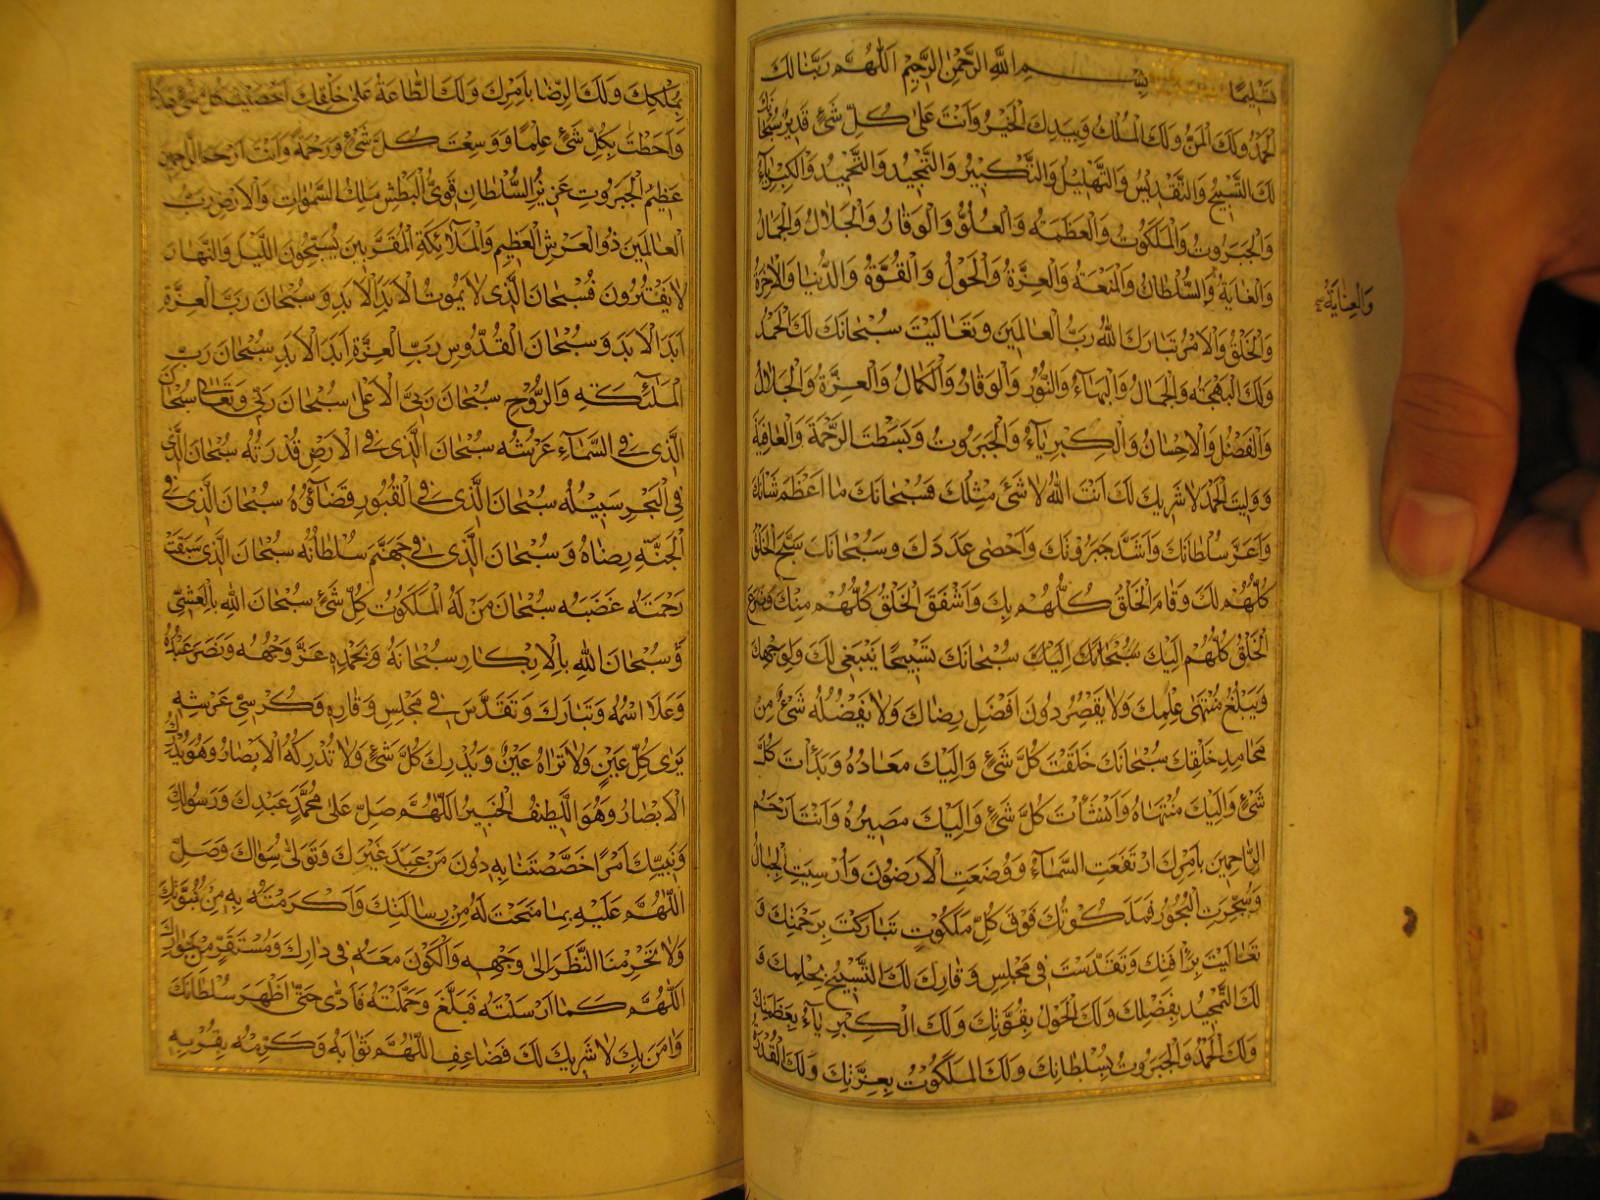 تسليما بسم الله الرحمن الرحيم اللهم ربنا لك
الحمد ولك المن ولك الملك وبيدك الخير وانت على كل شئ قدير سبحانك
لك التسبيح والتقديس والتهليل والتكبير والتمجيد والتحميد والكبرياء
والجبروت والملكوت والعظمة والعلو والوقار والجلال والجمال
والغاية والسلطان والمنعة والعزة والحول والقوة والدنيا والاخرة
والعناية
والخلق والامر تبارك الله رب العالمين وتعاليت سبحانك لك الحمد
ولك البهجة والجمال والبهاء والنور والوقار والكمال والعزة والجلال
والفضل والاحسان والكبرياء والجبروت وبسطت الرحمة والعافية
ووليت الحمد لا شريك لك انت الله لا شئ مثلك فسبحانك ما اعظم شانك
واعز سلطانك واشد جبروتك واحصى عددك وسبحانك سبح الخلق
كلهم لك وقام الخلق كلهم بك واشفق الخلق كلهم منك وضرع
الخلق كلهم اليك سبحانك اليك سبحانك تسبيحا ينبغي لك ولوجهك
ويبلغ منتهى علمك ولا يقصر دون افضل رضاك ولا يفضله شئ من
محامد خلقك سبحانك خلقت كل شئ واليك معاده وبدأت كل
شئ واليك منتهاه وانشأت كل شئ واليك مصيره وانت ارحم
الراحمين بامرك ارتفعت السماء ووضعت الارضون وارسيت الجبال
وسجرت البحور فملكوتك فوق كل ملكوت تباركت برحمتك و
تعاليت برافتك وتقدست في مجلس وقارك لك التسبيح بحلمك و
لك التمجيد بفضلك ولك الحول بقوتك ولك الكبرياء بعظمتك
ولك الحمد والجبروت بسلطانك ولك الملكوت بعزتك ولك القدرة
بملكك ولك الرضا بامرك ولك الطاعة على خلقك احصيت كل شئ عددا
واحطت بكل شئ علما ووسعت كل شئ ورحمة وانت ارحم الراحمين
عظيم الجبروت عزيز السلطان قوي البطش ملك السموات والارض رب
العالمين ذو العرش العظيم والملائكة المقربين يسبحون الليل والنهار
لا يفترون فسبحان الذي لا يموت الابد الابد وسبحان رب العزة
ابد الابد وسبحان القدوس رب العزة ابد الابد سبحان رب
الملائكة والروح سبحان ربي الاعلى سبحان ربي وتعالى سبحان
الذي في السماء عرشه سبحان الذي في الارض قدرته سبحان الذي
في البحر سبيله سبحان الذي في القبور قضاؤه سبحان الذي في
الجنة رضاه وسبحان الذي في جهنم سلطانه سبحان الذي سبقت
رحمته غضبه سبحان من له الملكوت كل شئ سبحان الله بالعشي
وسبحان الله بالابكار سبحانه وبحمده عز وجهه ونصر عبده
وعلا اسمه وتبارك وتقدس في مجلس وقاره وكرسي عرشه
يرى كل عين ولا تراه عين ويدرك كل شئ ولا تدركه الابصار وهو يدرك
الابصار وهو اللطيف الخبير اللهم صل على محمد عبدك ورسولك
ونبيك امرا اختصصتنا به دون من عبد غيرك وتولى سواك وصل
اللهم عليه بما منحت له من رسالتك واكرمته به من نبوتك
ولا تحرمنا النظر الى وجهه والكون معه في دارك ومستقر من جوارك
اللهم كما ارسلته فبلغ وحملته فادى حتى اظهر سلطانك
وامن بك لا شريك لك فضاعف اللهم ثوابه وكرمه بقربه